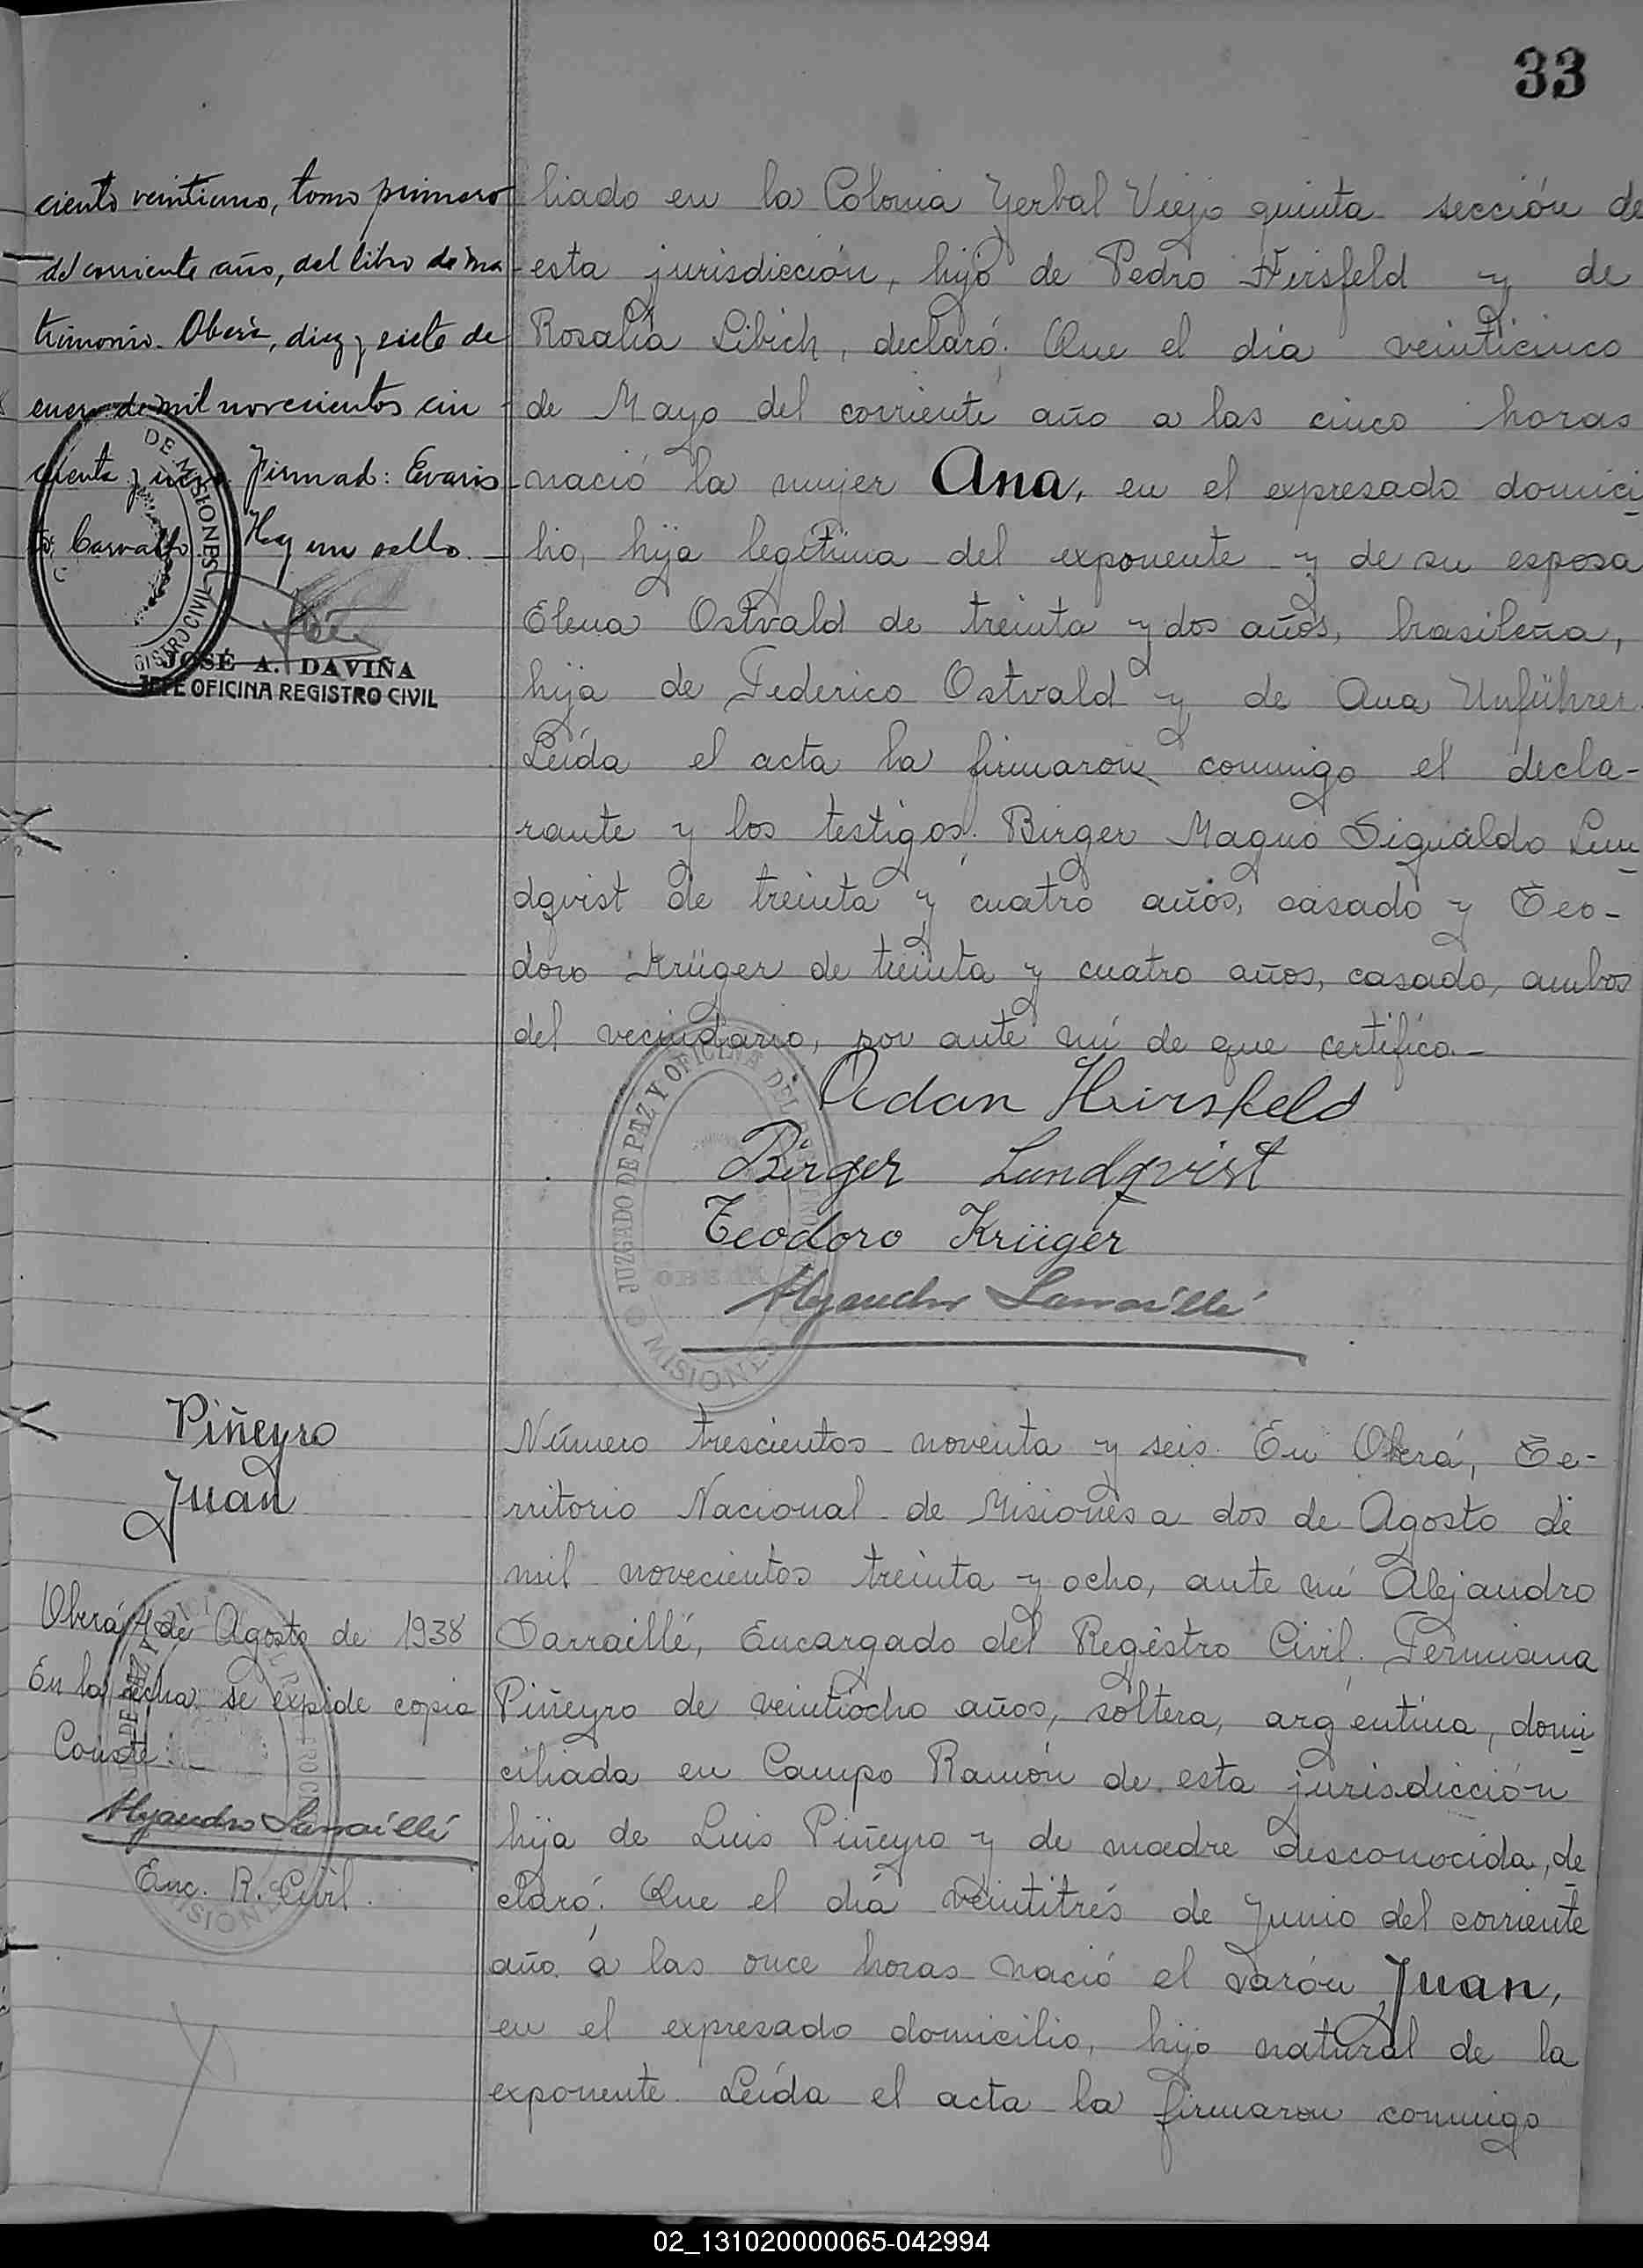 33
ciento veintiuno, tomo primero
del corriente año, del libro de ma
trimonio. Oberá, diez y siete de
enero de mil novecientos cin
cuenta y Firmad: Evaris
to Carvallo Hay un sello.
DE MISIONES
GISTRO CIVIL
JOSÉ A. DAVIÑA
JEFE OFICINA REGISTRO CIVIL
liado en la Colonia Yerbal Viejo quinta sección de
esta jurisdicción, hijo de Pedro Hirsfeld y de
Rosalía Libich, declaró: Que el día veinticinco
de Mayo del corriente año a las cinco horas
nació la mujer Ana, en el expresado domici
lio, hija legítima del exponente y de su esposa
Elena Ostvald de treinta y dos años, brasileña,
hija de Federico Ostvald y de Ana Unführer.
Leída el acta la firmaron conmigo el decla-
rante y los testigos: Birger Magno Sigualdo Lun
dqvist de treinta y cuatro años, casado y Teo-
doro Krüger de treinta y cuatro años, casado, ambos
del vecindario, por ante mí de que certifico.-
Adan Hirsfeld
Birger Lundqvist
Teodoro Krüger
Alejandro Sarraillé
JUZGADO DE PAZ Y OFICINA DEL REGISTRO CIVIL
OBERÁ
MISIONES
Piñeyro
Juan
Oberá 4 de Agosto de 1938
En la fecha se expide copia
Conste
Alejandro Sarraillé
Enc. R. Civil.
Número trescientos noventa y seis. En Oberá, Te-
rritorio Nacional de Misiones a dos de Agosto de
mil novecientos treinta y ocho, ante mí Alejandro
Sarraillé, Encargado del Registro Civil. Fermiana
Piñeyro de veintiocho años, soltera, argentina, domi
ciliada en Campo Ramón de esta jurisdicción
hija de Luis Piñeyro y de madre desconocida, de
claró: Que el día veintitrés de Junio del corriente
año a las once horas nació el varón Juan,
en el expresado domicilio, hijo natural de la
exponente. Leída el acta la firmaron conmigo
02_131020000065-042994